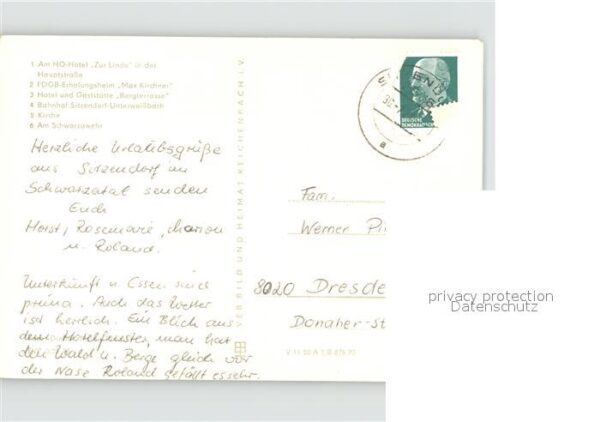 1 Am HO-Hotel „Zur Linde“ in der
Hauptstraße
2 FDGB-Erholungsheim „Max Kirchner“
3 Hotel und Gaststätte „Bergterrasse“
4 Bahnhof Sitzendorf-Unterweißbach
5 Kirche
6 Am Schwarzawehr
Herzliche Urlaubsgrüße
aus Sitzendorf im
Schwarzatal senden
Euch
Horst, Rosemarie, Marion
u. Roland.
Unterkunft u. Essen sind
prima. Auch das Wetter
ist herrlich. Ein Blick aus
dem Hotelfenster, man hat
den Wald u. Berge gleich vor
der Nase Roland gefällt es sehr.
VEB BILD UND HEIMAT REICHENBACH I. V.
DEUTSCHE
DEMOKRATISCHE
a
Fam.
Werner Pi
8020 Dresde
Donaher-St
V 11 50 A 1/B 876/70
privacy protection
Datenschutz